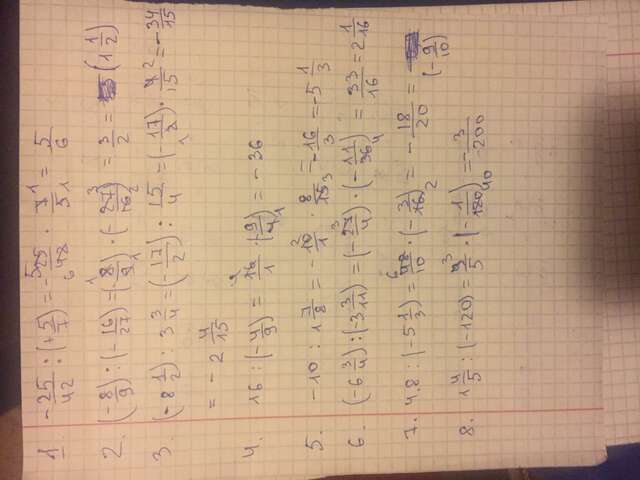 1. -25/42 : (+5/7) = -25/42 · 7/5 = 5/6
2. (-8/9) : (-16/27) = (-8/9) · (-27/16) = 3/2 = (1 1/2)
3. (-8 1/2) : 3 3/4 = (-17/2) : 15/4 = (-17/2) · 4/15 = -34/15
= -2 4/15
4. 16 : (-4/9) = 16/1 · (9/4) = -36
5. -10 : 1 7/8 = -10/1 · 8/15 = -16/3 = -5 1/3
6. (-6 3/4) : (-3 3/11) = (-27/4) · (-11/36) = 33/16 = 2 1/16
7. 4,8 : (-5 1/3) = 48/10 · (-3/16) = -18/20 = (-9/10)
8. 1 4/5 : (-120) = 9/5 · (-1/120) = -3/-200